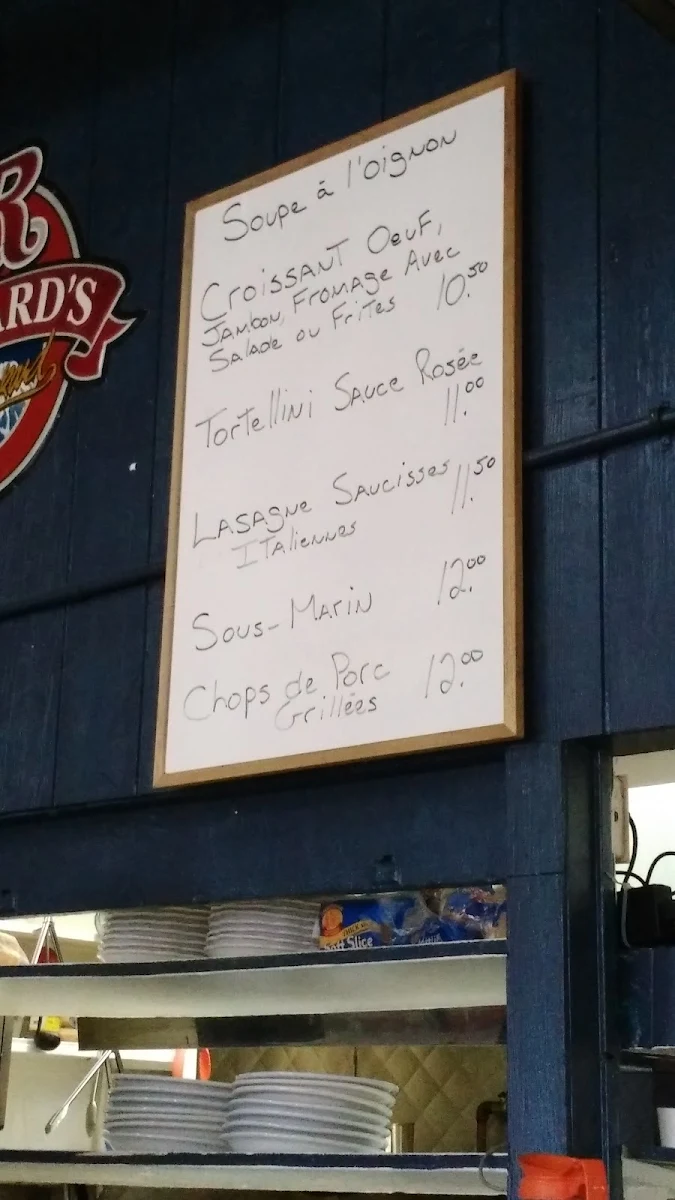 R
ARD'S
Soupe à l'oignon
Croissant Oeuf,
Jambon, Fromage Avec
Salade ou Frites 10.50
Tortellini Sauce Rosée
11.00
Lasagne Saucisses 11.50
Italiennes
Sous-Marin 12.00
Chops de Porc 12.00
Grillées